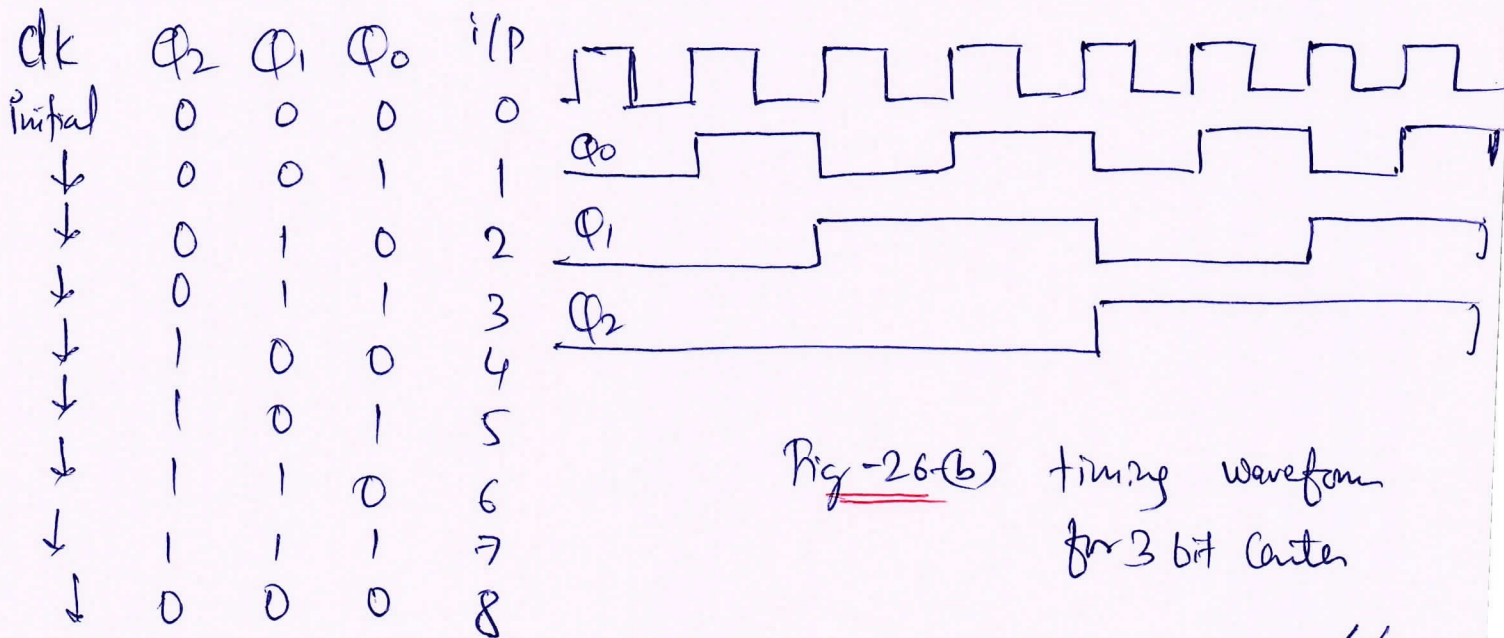 clk Q2 Q1 Q0 i/p
initial 0 0 0 0
↓ 0 0 1 1
↓ 0 1 0 2
↓ 0 1 1 3
↓ 1 0 0 4
↓ 1 0 1 5
↓ 1 1 0 6
↓ 1 1 1 7
↓ 0 0 0 8
Q0
Q1
Q2
Fig-26-(b) timing waveform
for 3 bit Conter